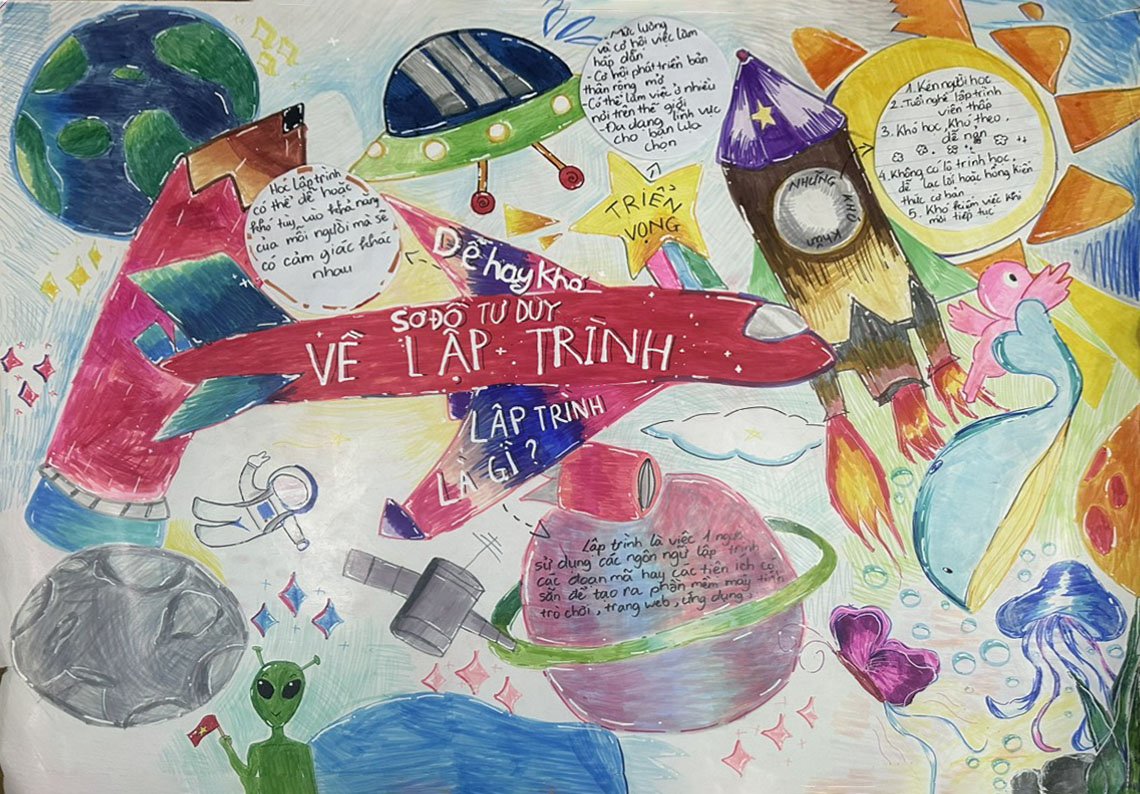 SƠ ĐỒ TƯ DUY
VỀ LẬP TRÌNH
Dễ hay khó
Học lập trình
có thể dễ hoặc
khó tùy vào khả năng
của mỗi người mà sẽ
có cảm giác khác
nhau
LẬP TRÌNH
LÀ GÌ?
Lập trình là việc 1 người
sử dụng các ngôn ngữ lập trình
các đoạn mã hay các tiện ích có
sẵn để tạo ra phần mềm máy tính
trò chơi, trang web, ứng dụng
TRIỂN
VỌNG
- Mức lương
và cơ hội việc làm
hấp dẫn
- Cơ hội phát triển bản
thân rộng mở
- Có thể làm việc ở nhiều
nơi trên thế giới
- Đa dạng lĩnh vực
cho bạn lựa
chọn
NHỮNG
KHÓ
Khăn
1. Kén người học
2. Tuổi nghề lập trình
viên thấp
3. Khó học, khó theo,
dễ nản
4. Không có lộ trình học,
dễ lạc lối hoặc hỏng kiến
thức cơ bản
5. Khó kiếm việc khi
mới tiếp tục